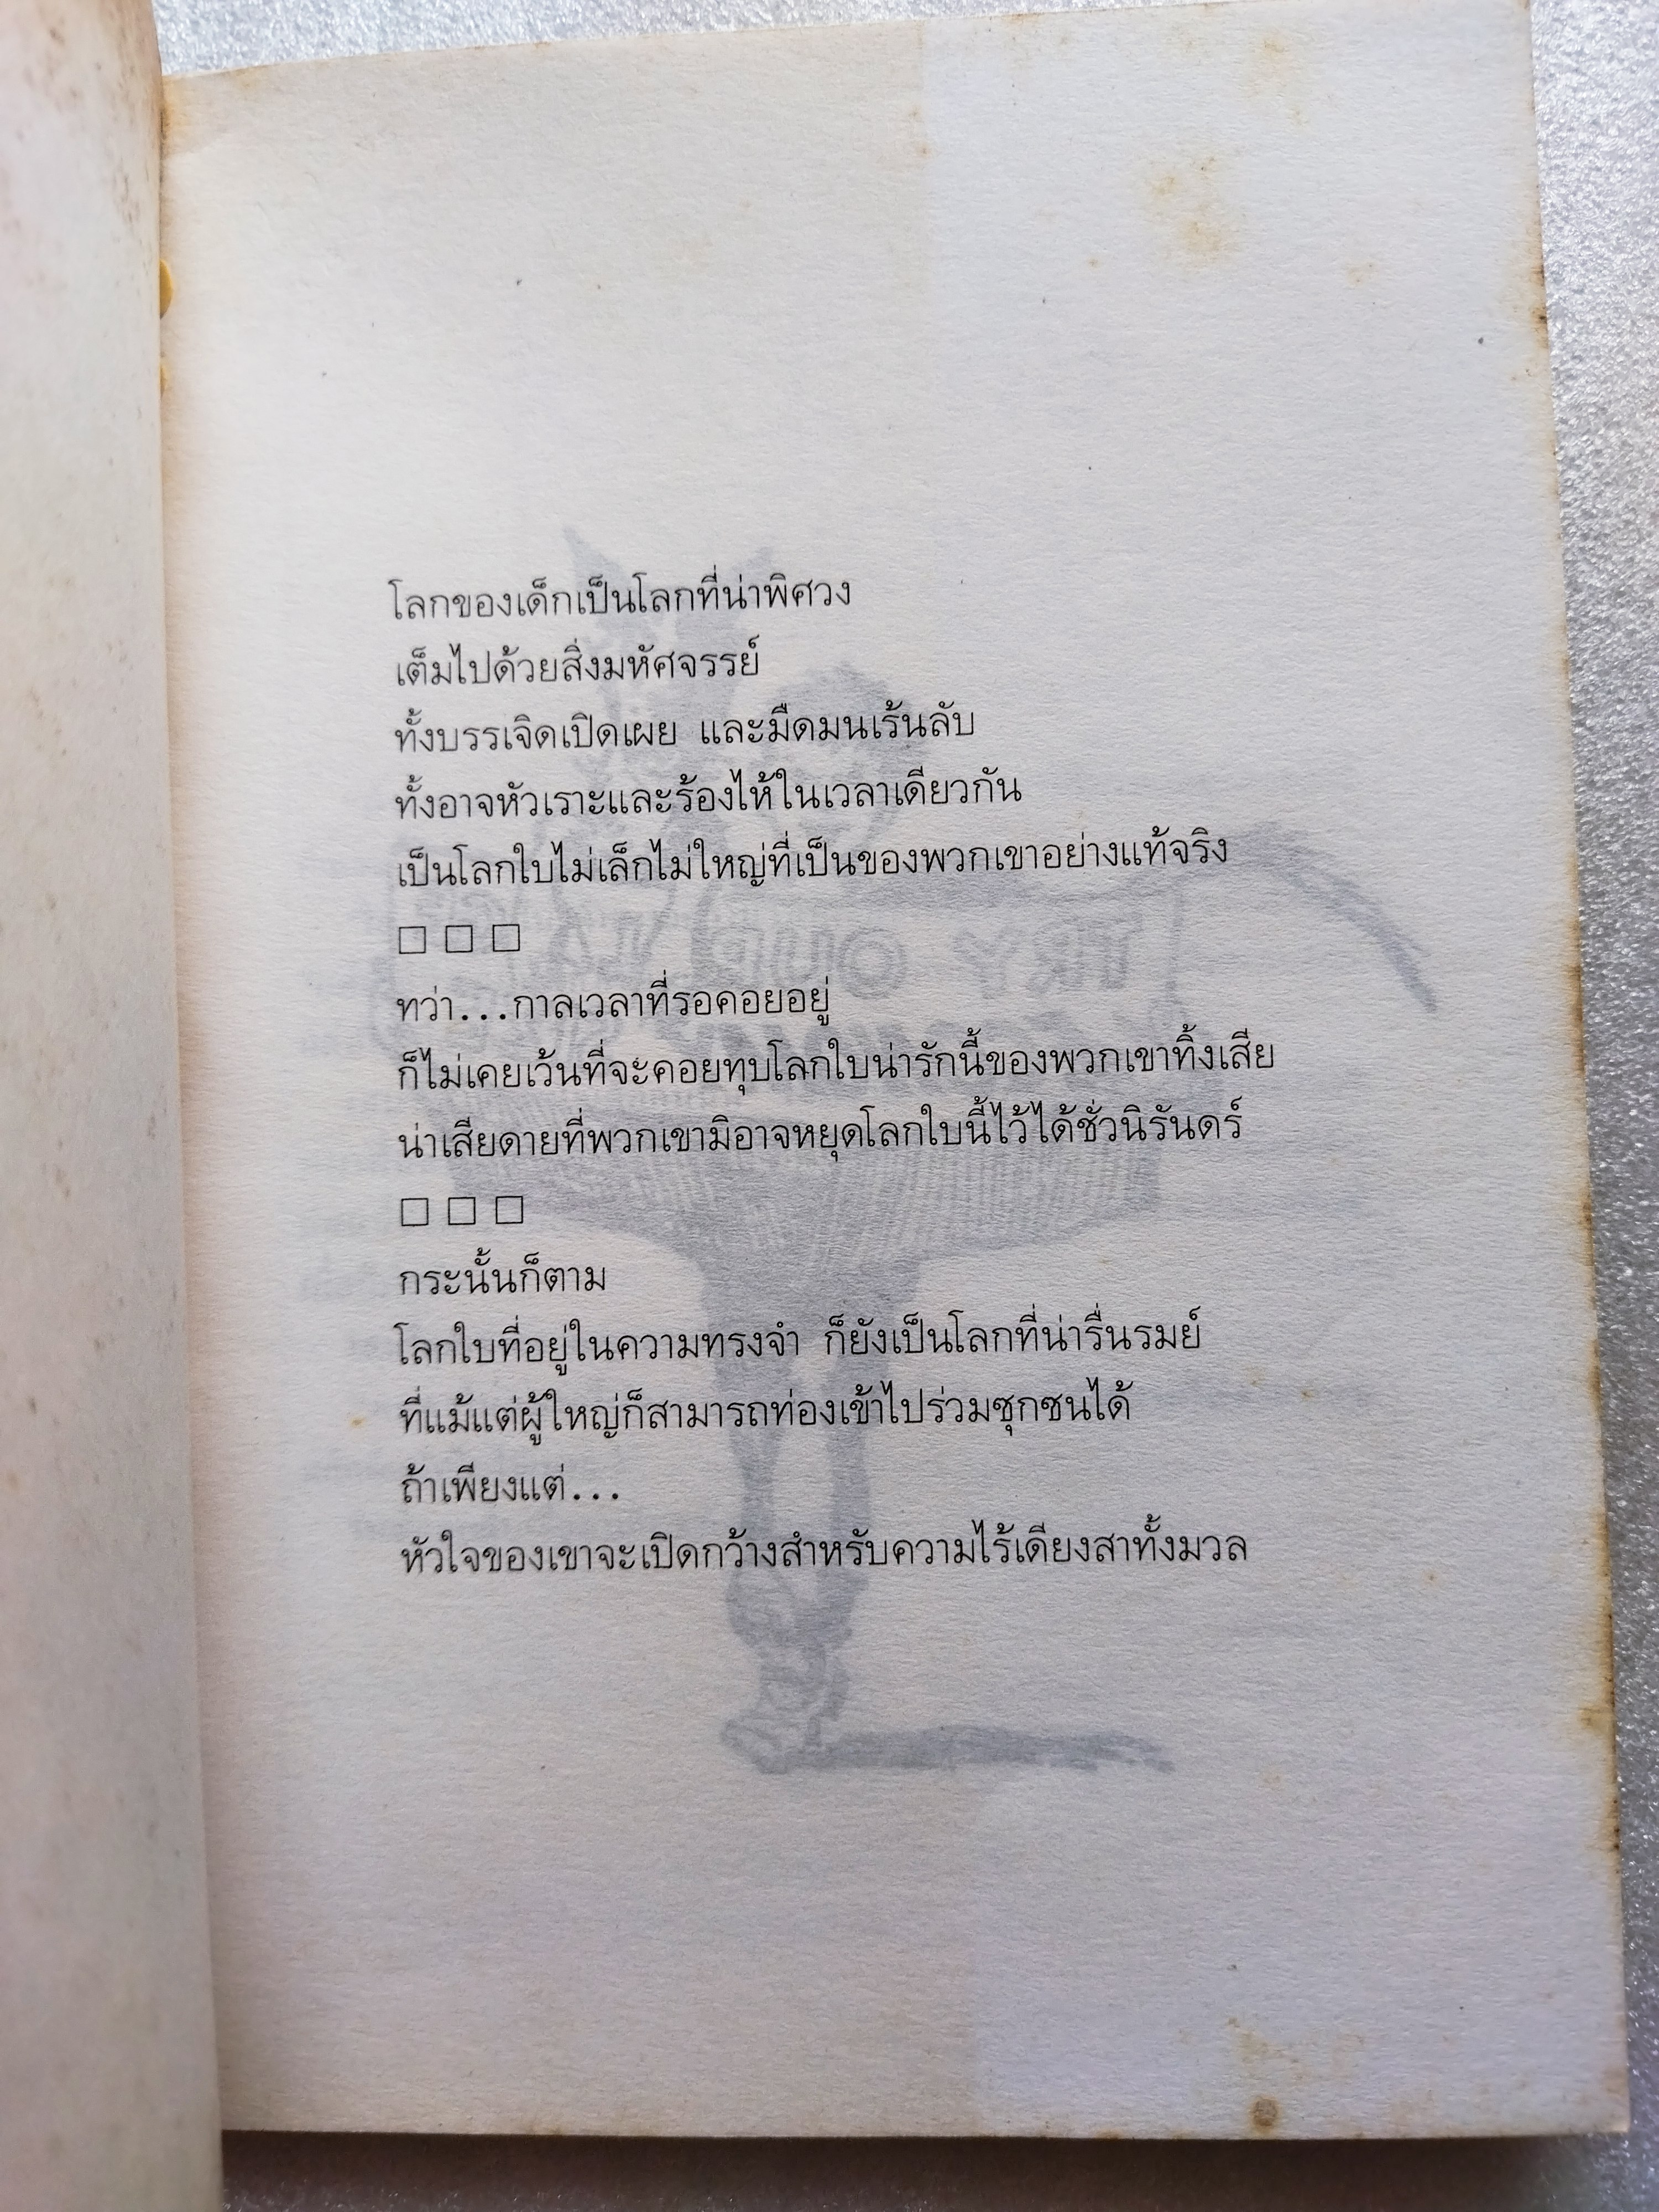 โลกของเด็กเป็นโลกที่น่าพิศวง
เต็มไปด้วยสิ่งมหัศจรรย์
ทั้งบรรเจิดเปิดเผย และมืดมนเร้นลับ
ทั้งอาจหัวเราะและร้องไห้ในเวลาเดียวกัน
เป็นโลกใบไม่เล็กไม่ใหญ่ที่เป็นของพวกเขาอย่างแท้จริง
□ □ □
ทว่า...กาลเวลาที่รอคอยอยู่
ก็ไม่เคยเว้นที่จะคอยทุบโลกใบน่ารักนี้ของพวกเขาทิ้งเสีย
น่าเสียดายที่พวกเขามิอาจหยุดโลกใบนี้ไว้ได้ชั่วนิรันดร์
□ □ □
กระนั้นก็ตาม
โลกใบที่อยู่ในความทรงจำ ก็ยังเป็นโลกที่น่ารื่นรมย์
ที่แม้แต่ผู้ใหญ่ก็สามารถท่องเข้าไปร่วมซุกซนได้
ถ้าเพียงแต่...
หัวใจของเขาจะเปิดกว้างสำหรับความไร้เดียงสาทั้งมวล
TRY OUR